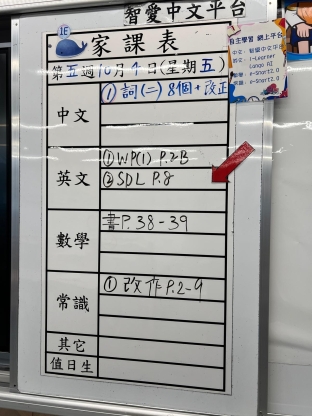 智愛中文平台
1E
家課表
自主學習 網上平台
中文：智愛中文平台
英文：i-Learner
Lango AI
數學：e-Smart2.0
常識：e-Smart2.0
第五週10月4日(星期五)
中文
① 詞(二) 8個+改正
英文
① WP(1) P.2B
② SDL P.8
數學
書P.38-39
常識
① 改作P.2-9
其它
值日生